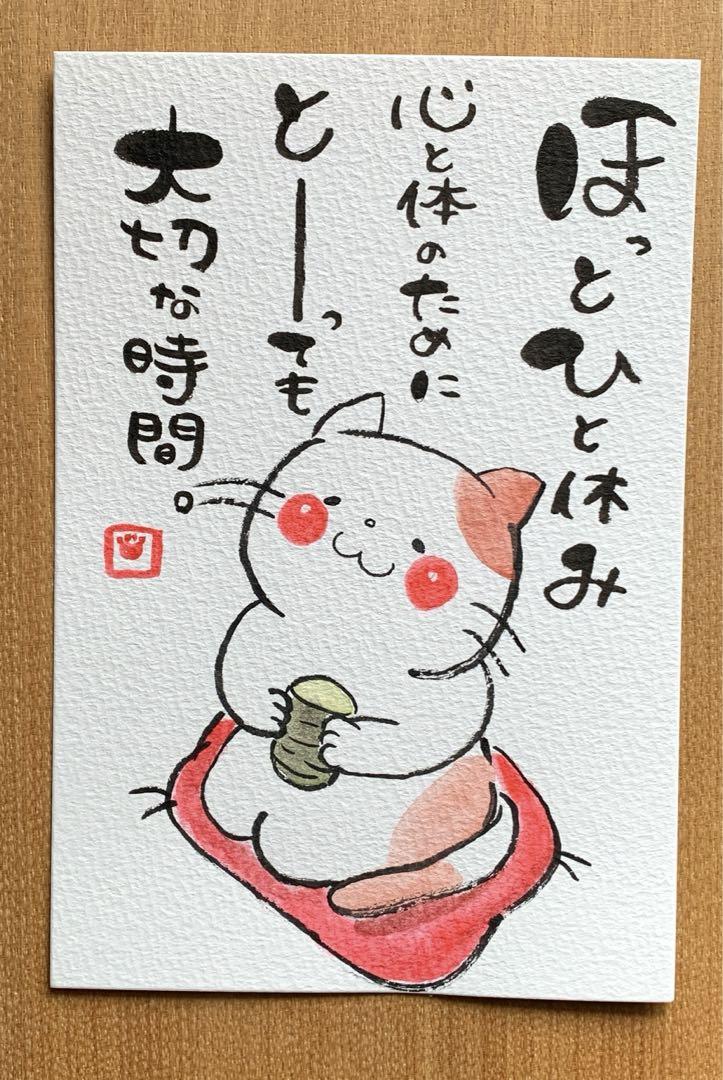 ほっとひと休み
心と体のために
とーっても
大切な時間。